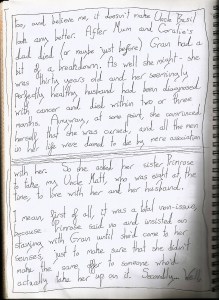 too, and believe me, it doesn't make Uncle Basil
look any better. After Mum and Coralie's
dad died (or maybe just before) Gran had a
bit of a breakdown. As well she might - she
was thirty years old and her seemingly
perfectly healthy husband had been diagnosed
with cancer and died within two or three
months. Anyway, at some point, she convinced
herself that she was cursed, and all the men
in her life were doomed to die by mere association
with her. So she asked her sister Primrose
to take my Uncle Matt, who was eight at the
time, to live with her and her husband.
I mean, first of all, it was a total non-issue,
because Primrose said no and insisted on
staying with Gran until she'd come to her
senses, just to make sure that she didn't
make the same offer to someone who'd
actually take her up on it. Secondly,